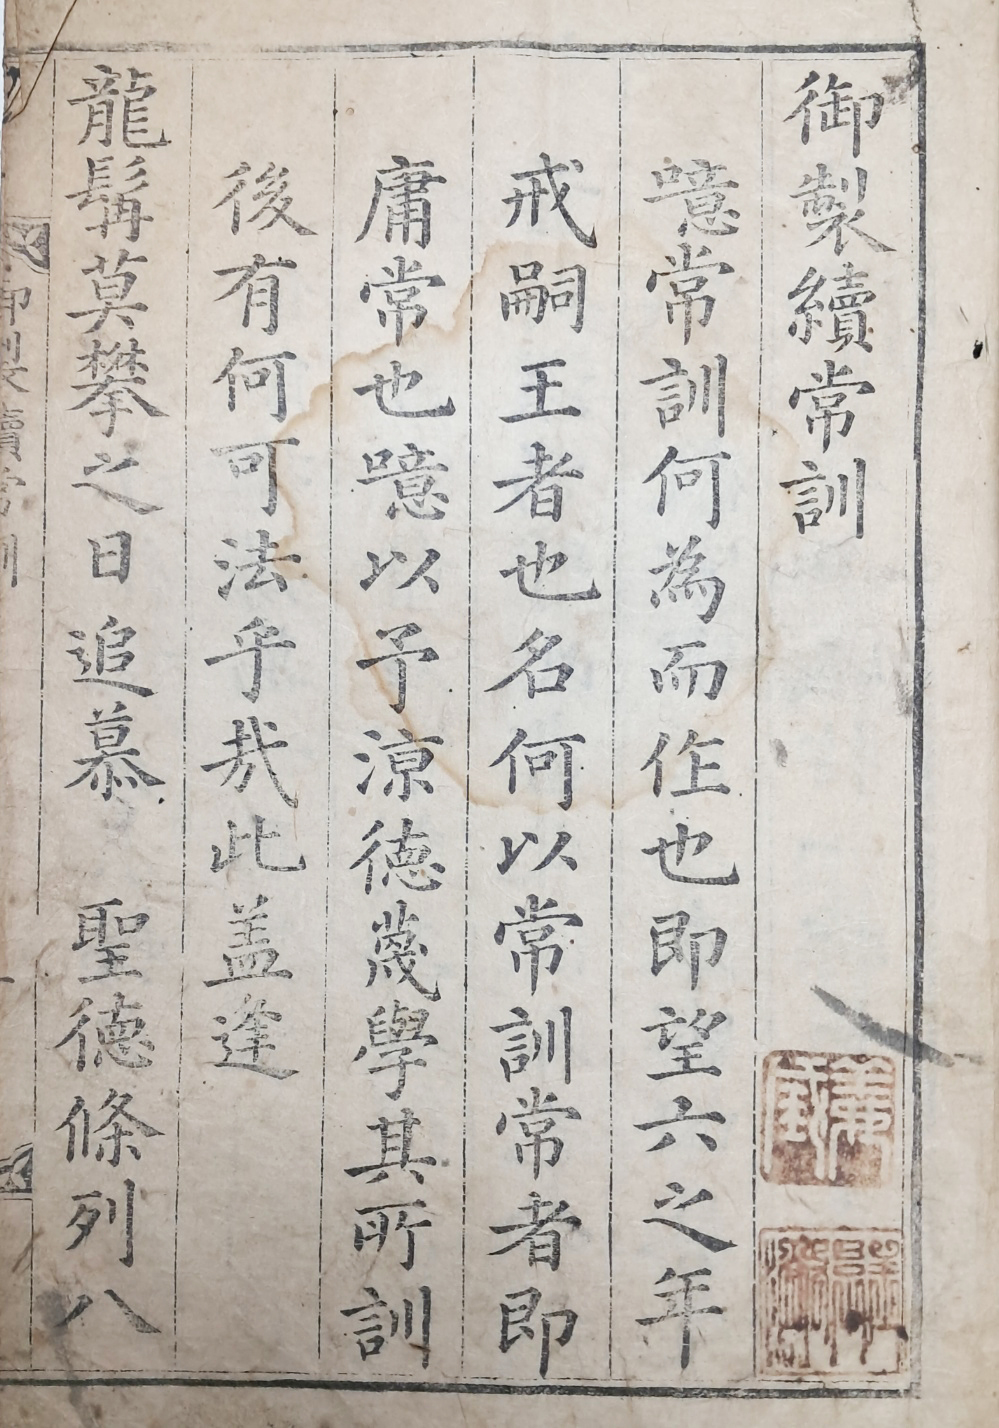 御製續常訓
噫常訓何為而作也即望六之年
戒嗣王者也名何以常訓常者即
庸常也噫以予涼德蔑學其所訓
後有何可法乎哉此盖逢
龍髯莫攀之日追慕 聖德條列八
御製續常訓